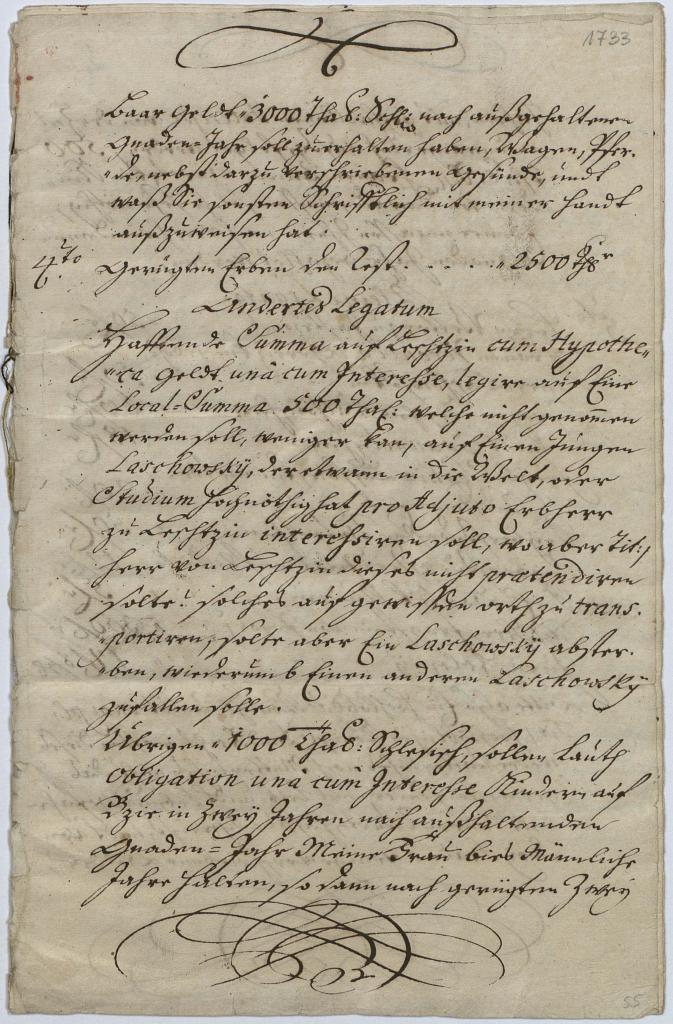 1733
Baar Geldt 3000 Thal: Schl: nach außgehaltenen
Gnaden-Jahr soll zuerhalten haben, Wagen, Pfer-
de, nebst darzu verschriebenen Gesünde, undt
waß Sie sonsten Schrifftlich mit meiner Handt
außzuweisen hat.
4to Gerügten Erben den Rest. . . . . 2500 Thlr
Andertes Legatum
Hafftende Summa auf Leschtzin cum Hypothe-
ca Geldt unà cum Interesse, legire auf Eine
Local-Summa 500 Thal: welche nicht genommen
werden soll, weniger kan, auf Einen Jungen
Laschowskÿ, der etwann in die Welt, oder
Studium hochnöthig hat pro Adjuto Erbherr
zu Leschtzin interessiren soll, wo aber Tit:
Herr von Leschtzin dieses nicht prætendiren
solte: solches auf gewissen orth zu trans-
portiren, solte aber Ein Laschowskÿ abster-
ben, wiederumb Einen anderen Laschowskÿ
zufallen solle.
Übrigen 1000 Thal: Schlesisch, sollen lauth
Obligation unà cum Interesse Kindern auf
in Zweÿ Jahren nach außhaltenden
Gnaden-Jahr Meine Frau bies Männliche
Jahre halten, so dann nach gerügten Zweÿ
55